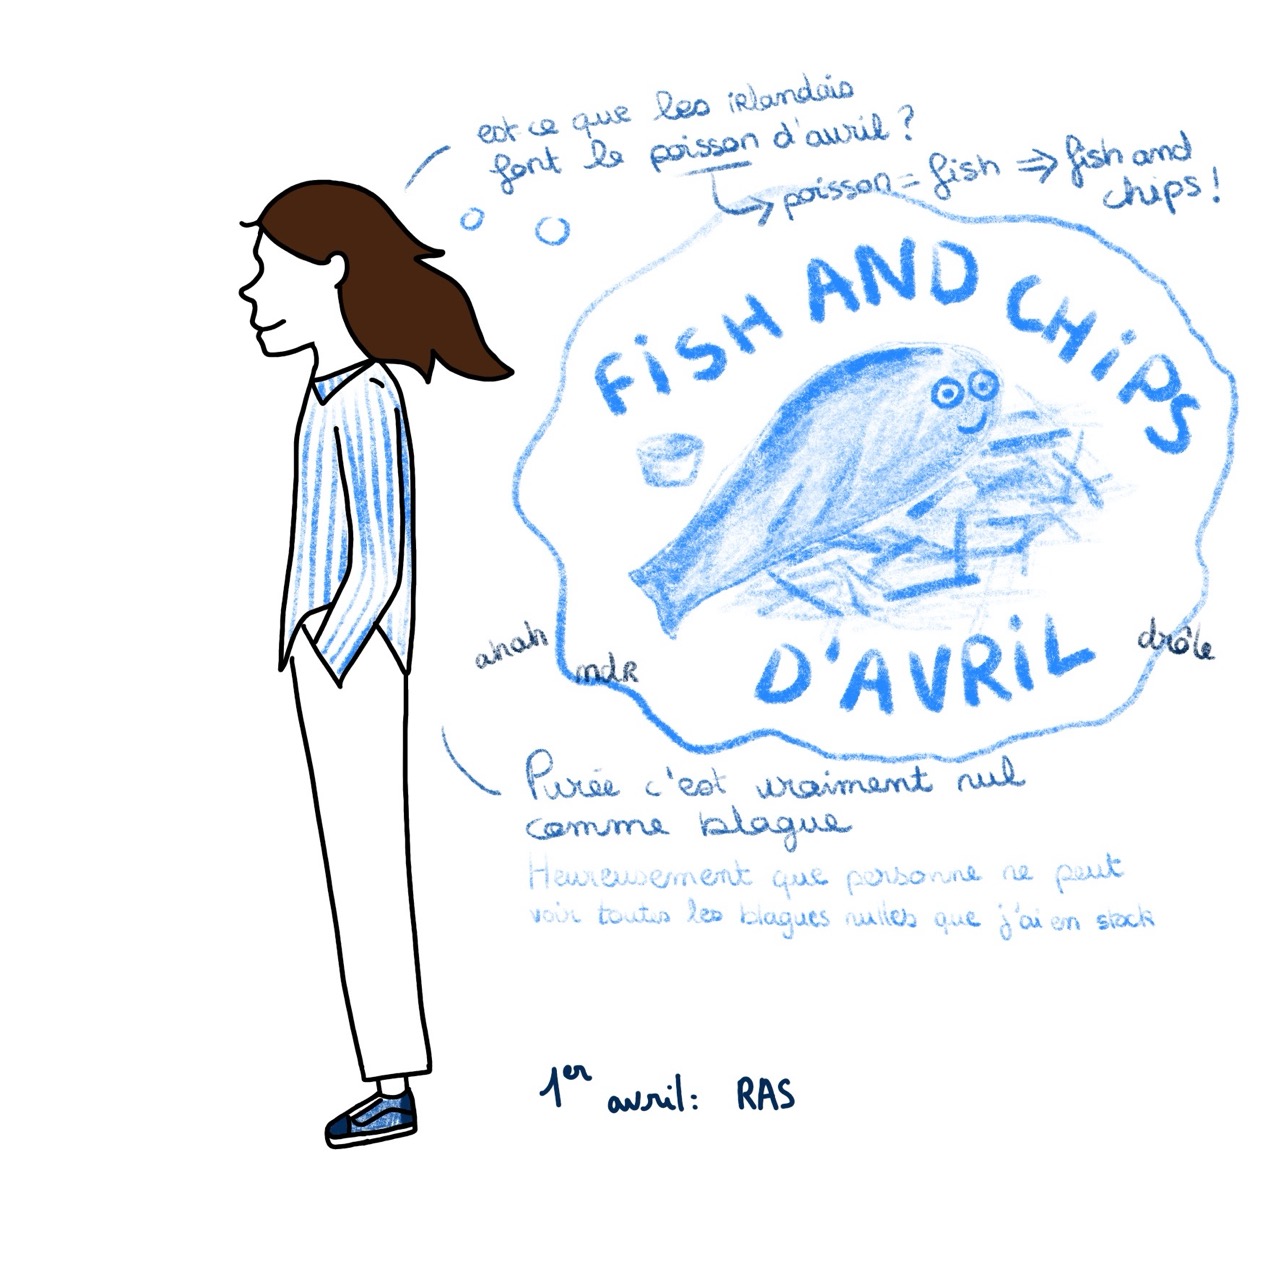 est ce que les irlandais
font le poisson d'avril ?
poisson = fish ⇒ fish and
chips !
FISH AND CHIPS
D'AVRIL
ahah
mdr
drôle
Purée c'est vraiment nul
comme blague
Heureusement que personne ne peut
voir toutes les blagues nulles que j'ai en stock
1er avril : RAS